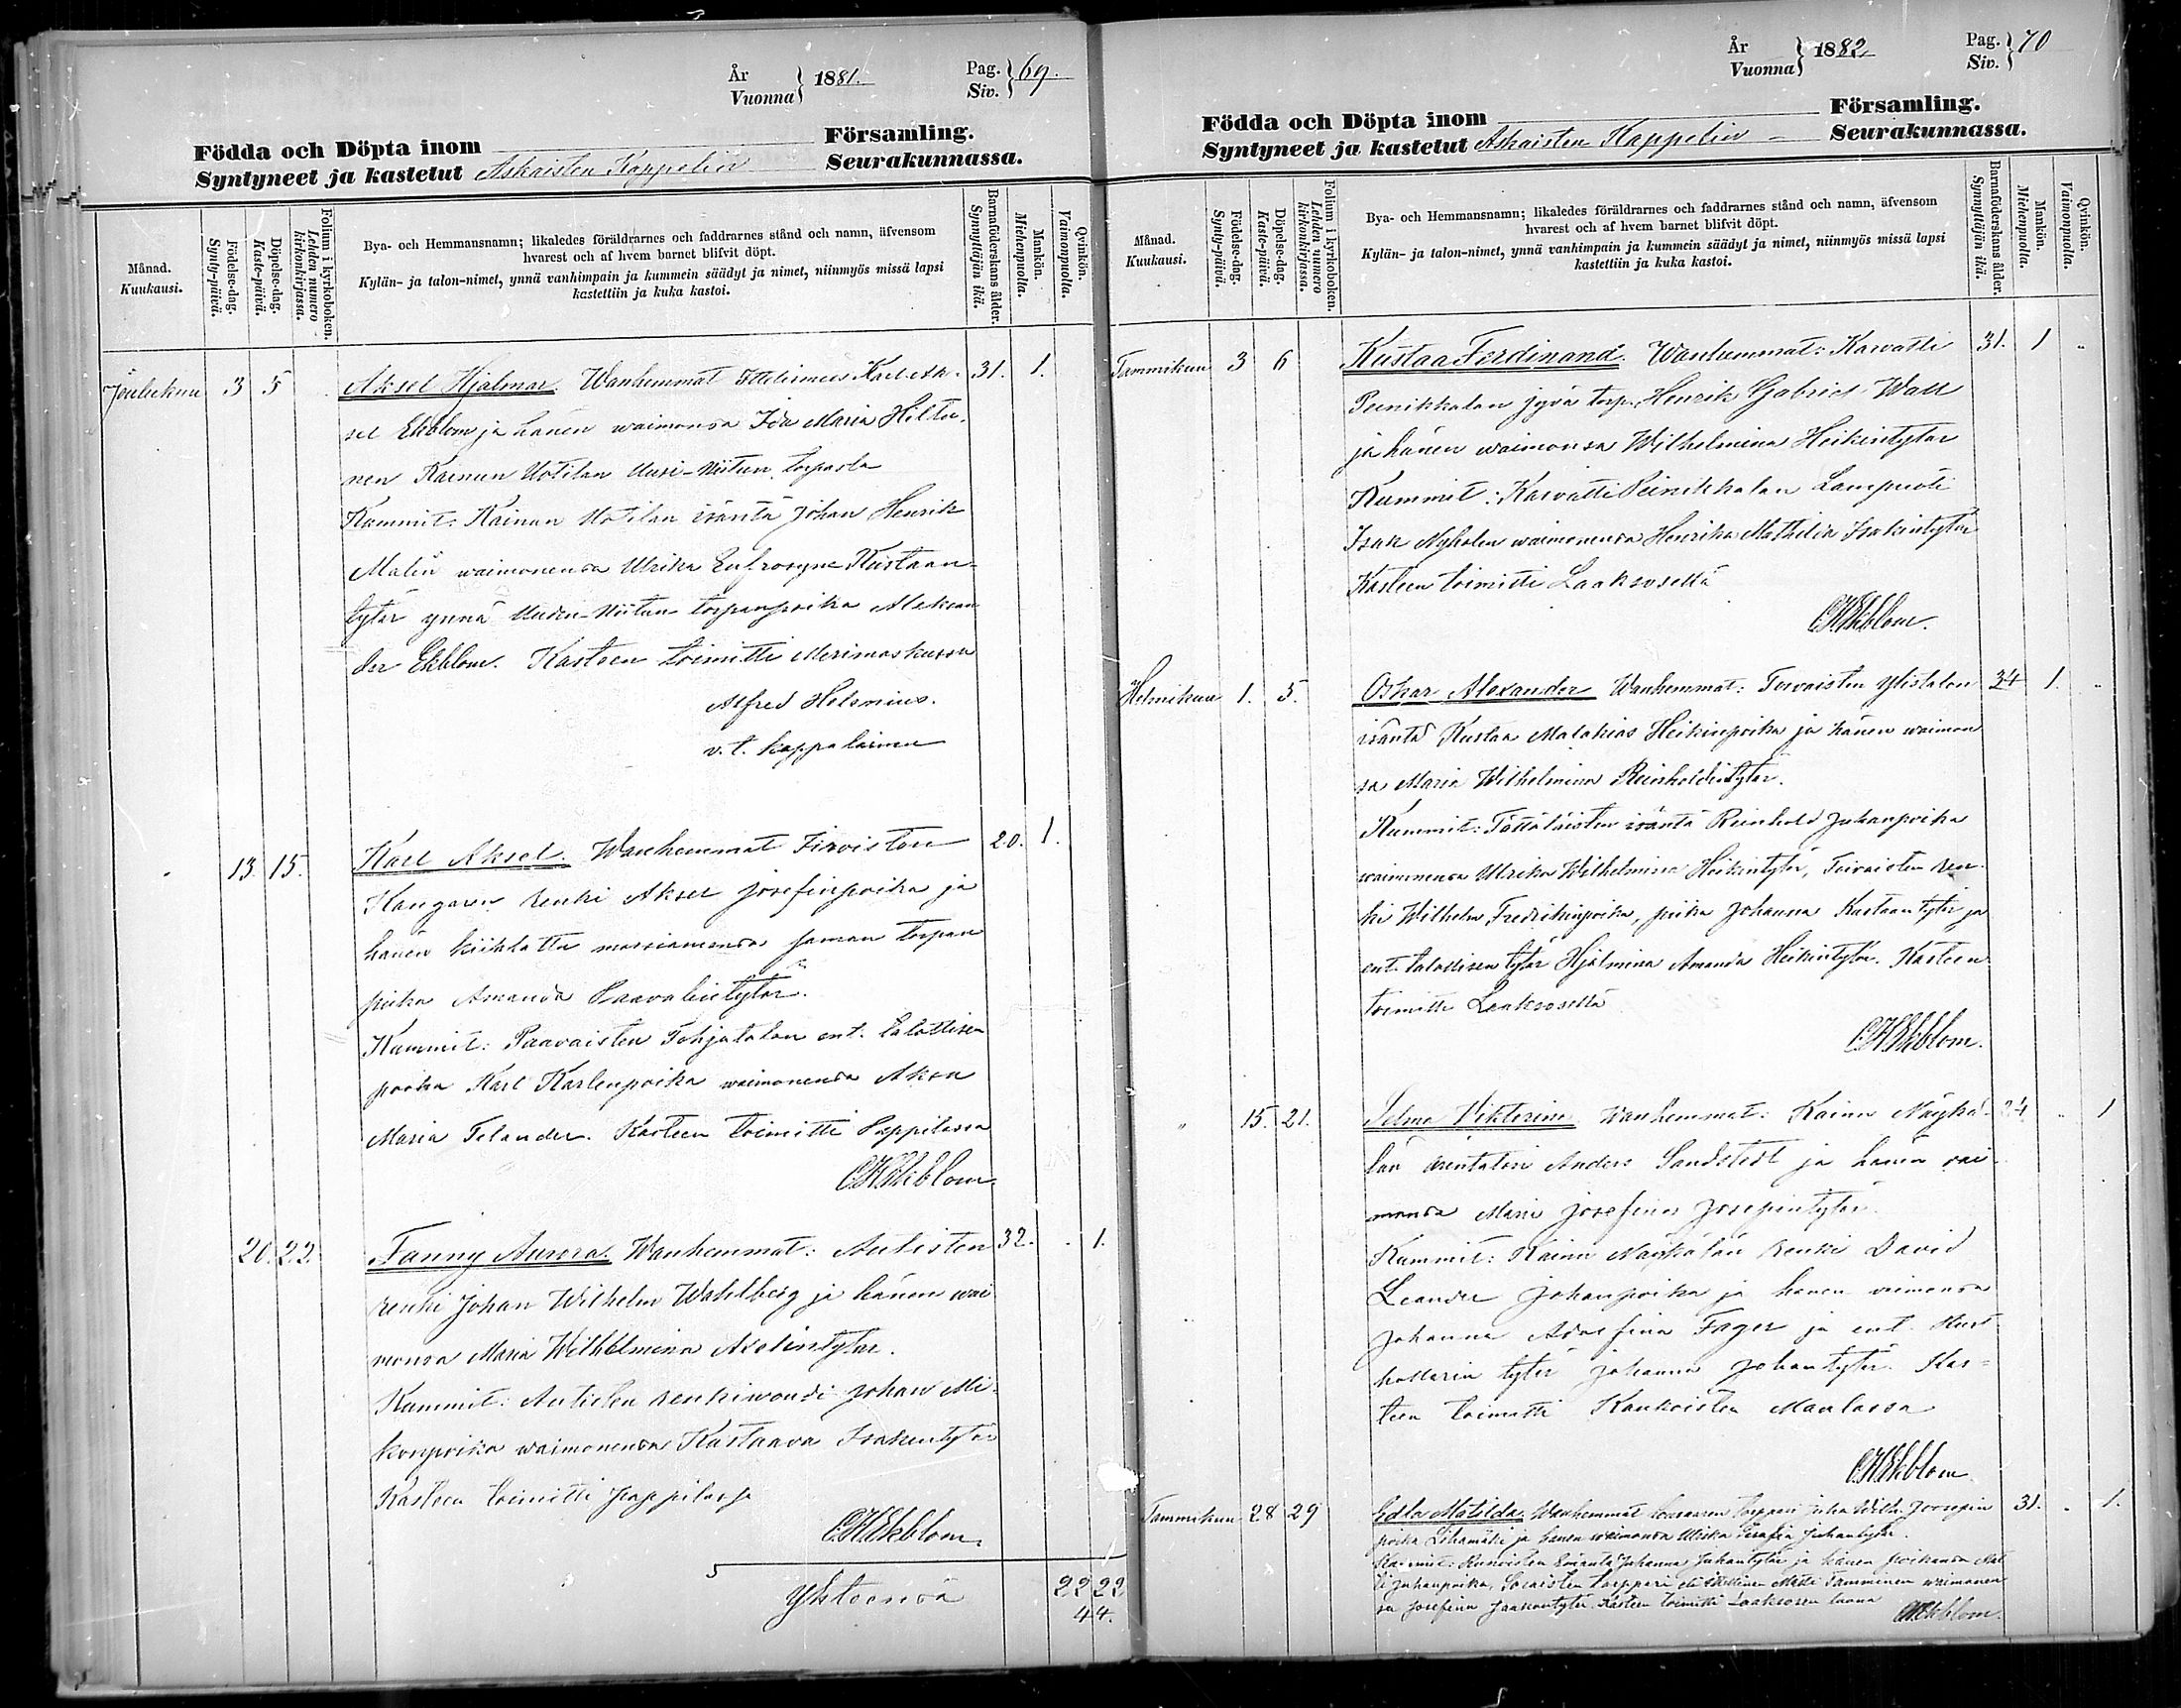 År
Vuonna } 1881.
Pag.
Siv. } 69.
Födda och Döpta inom Församling.
Syntyneet ja kastetut Askaisten Kappelin Seurakunnassa.
Månad.
Kuukausi.
Födelse-dag.
Synty-päivä.
Döpelse-dag.
Kaste-päivä.
Folium i kyrkoboken.
Lehden numero
kirkonkirjassa.
Bya- och Hemmansnamn; likaledes föräldrarnes och faddrarnes stånd och namn, äfvensom
hvarest och af hvem barnet blifvit döpt.
Kylän- ja talon-nimet, ynnä vanhimpain ja kummein säädyt ja nimet, niinmyös missä lapsi
kastettiin ja kuka kastoi.
Barnaföderskans ålder.
Synnyttäjän ikä.
Mankön.
Miehenpuolta.
Qvinkön.
Vaimonpuolta.
Joulukuu 3 5 Aksel Hjalmar. Wanhemmat Karl Ak- 31. 1.
sel Ekblom ja hänen waimonsa Ida Maria Hiltu-
nen Kainun Uotilan Uusi-Niitun torpasta
Kummit: Kainun Uotilan isäntä Johan Henrik
Malin waimonensa Ulrika Eufrosyne Kustaan-
tytär ynnä Uuden-Niitun torpanpoika Aleksan
der Ekblom. Kasteen toimitti Merimaskussa
Alfred Helenius.
v.t. kappalainen
13. 15. Karl Aksel. Wanhemmat 20. 1.
Kangaren renki Aksel Josefinpoika ja
hänen kihlattu morsiamensa saman torpan
piika Amanda Paavalintytär.
Kummit: Paavaisten Tohjatalon ent. talollisen
poika Karl Karlenpoika waimonensa
Maria Telander. Kasteen toimitti Pappilassa
CHEkblom
20. 22. Fanny Aurora. Wanhemmat: Autisten 32. . 1.
renki Johan Wilhelm Wahlberg ja hänen wai
monsa Maria Wilhelmina Akselintytär.
Kummit: Autisten renkiwouti Johan Mi-
konpoika waimonensa Kustaava Isakintytär
Kasteen toimitti Pappilassa
CHEkblom.
Yhteensä 22 22
44.
År
Vuonna } 1882.
Pag.
Siv. } 70
Födda och Döpta inom Församling.
Syntyneet ja kastetut Askaisten Kappelin Seurakunnassa.
Månad.
Kuukausi.
Födelse-dag.
Synty-päivä.
Döpelse-dag.
Kaste-päivä.
Folium i kyrkoboken.
Lehden numero
kirkonkirjassa.
Bya- och Hemmansnamn; likaledes föräldrarnes och faddrarnes stånd och namn, äfvensom
hvarest och af hvem barnet blifvit döpt.
Kylän- ja talon-nimet, ynnä vanhimpain ja kummein säädyt ja nimet, niinmyös missä lapsi
kastettiin ja kuka kastoi.
Barnaföderskans ålder.
Synnyttäjän ikä.
Mankön.
Miehenpuolta.
Qvinkön.
Vaimonpuolta.
Tammikuu 3 6 Kustaa Ferdinand. Wanhemmat: Karvatti 31. 1 "
Peinikkalan jyvä torp. Henrik Gabriel Wall
ja hänen waimonsa Wilhelmina Heikintytär
Kummit: Karvatti Peinikkalan Lampuoti
Isak Nyholm waimonensa Henrika Mathilda Isakintytär
Kasteen toimitti Laaksosella
CHEkblom.
Helmikuu 1. 5. Oskar Alexander Wanhemmat: Toivaisten Ylistalon 34 1. "
isäntä Kustaa Malakias Heikinpoika ja hänen waimon
sa Maria Wilhelmina Reinholdintytär.
Kummit: isäntä Reinhold Juhanpoika
waimonensa Ulrika Wilhelmina Heikintytär, Toivaisten ren-
ki Wilhelm Fredrikinpoika, piika Johanna Kustaantytär ja
ent. talollisen tytär Hjelmina Amanda Heikintytär. Kasteen
toimitti Laaksosella
CHEkblom.
" 15. 21. Selma Viktorina. Wanhemmat: Kainu Näykä- 24. " 1
län arentatori Anders Sandstedt ja hänen vai-
monsa Maria Josefina Josepintytär.
Kummit: Kainu Näykälän renki David
Leander Johanpoika ja hänen vaimonsa
Johanna Adolfina Fager ja ent.
tytär Johanna Johantytär. Kas-
teen toimitti Kankoisten Maulassa
CHEkblom
Tammikuu 28 29 Edla Matilda. Wanhemmat torppari Juha Wilh. Joosepin 31. " 1.
poika Lihamäki ja hänen waimonsa Ulrika Serafia Juhantytär.
Kummit: Emäntä Johanna Juhantytär ja hänen poikansa Mat
ti Juhanpoika, torppari Matti Tamminen waimonen
sa Josefina Jaakontytär. Kasteen toimitti Laaksosen luona CHEkblom.